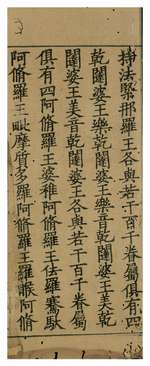 持法緊那羅王各與若干百千眷屬俱有四
乾闥婆王樂乾闥婆王樂音乾闥婆王美乾
闥婆王美音乾闥婆王各與若干百千眷屬
俱有四阿脩羅王婆稚阿脩羅王佉羅騫馱
阿脩羅王毗摩質多羅阿脩羅王羅睺阿脩